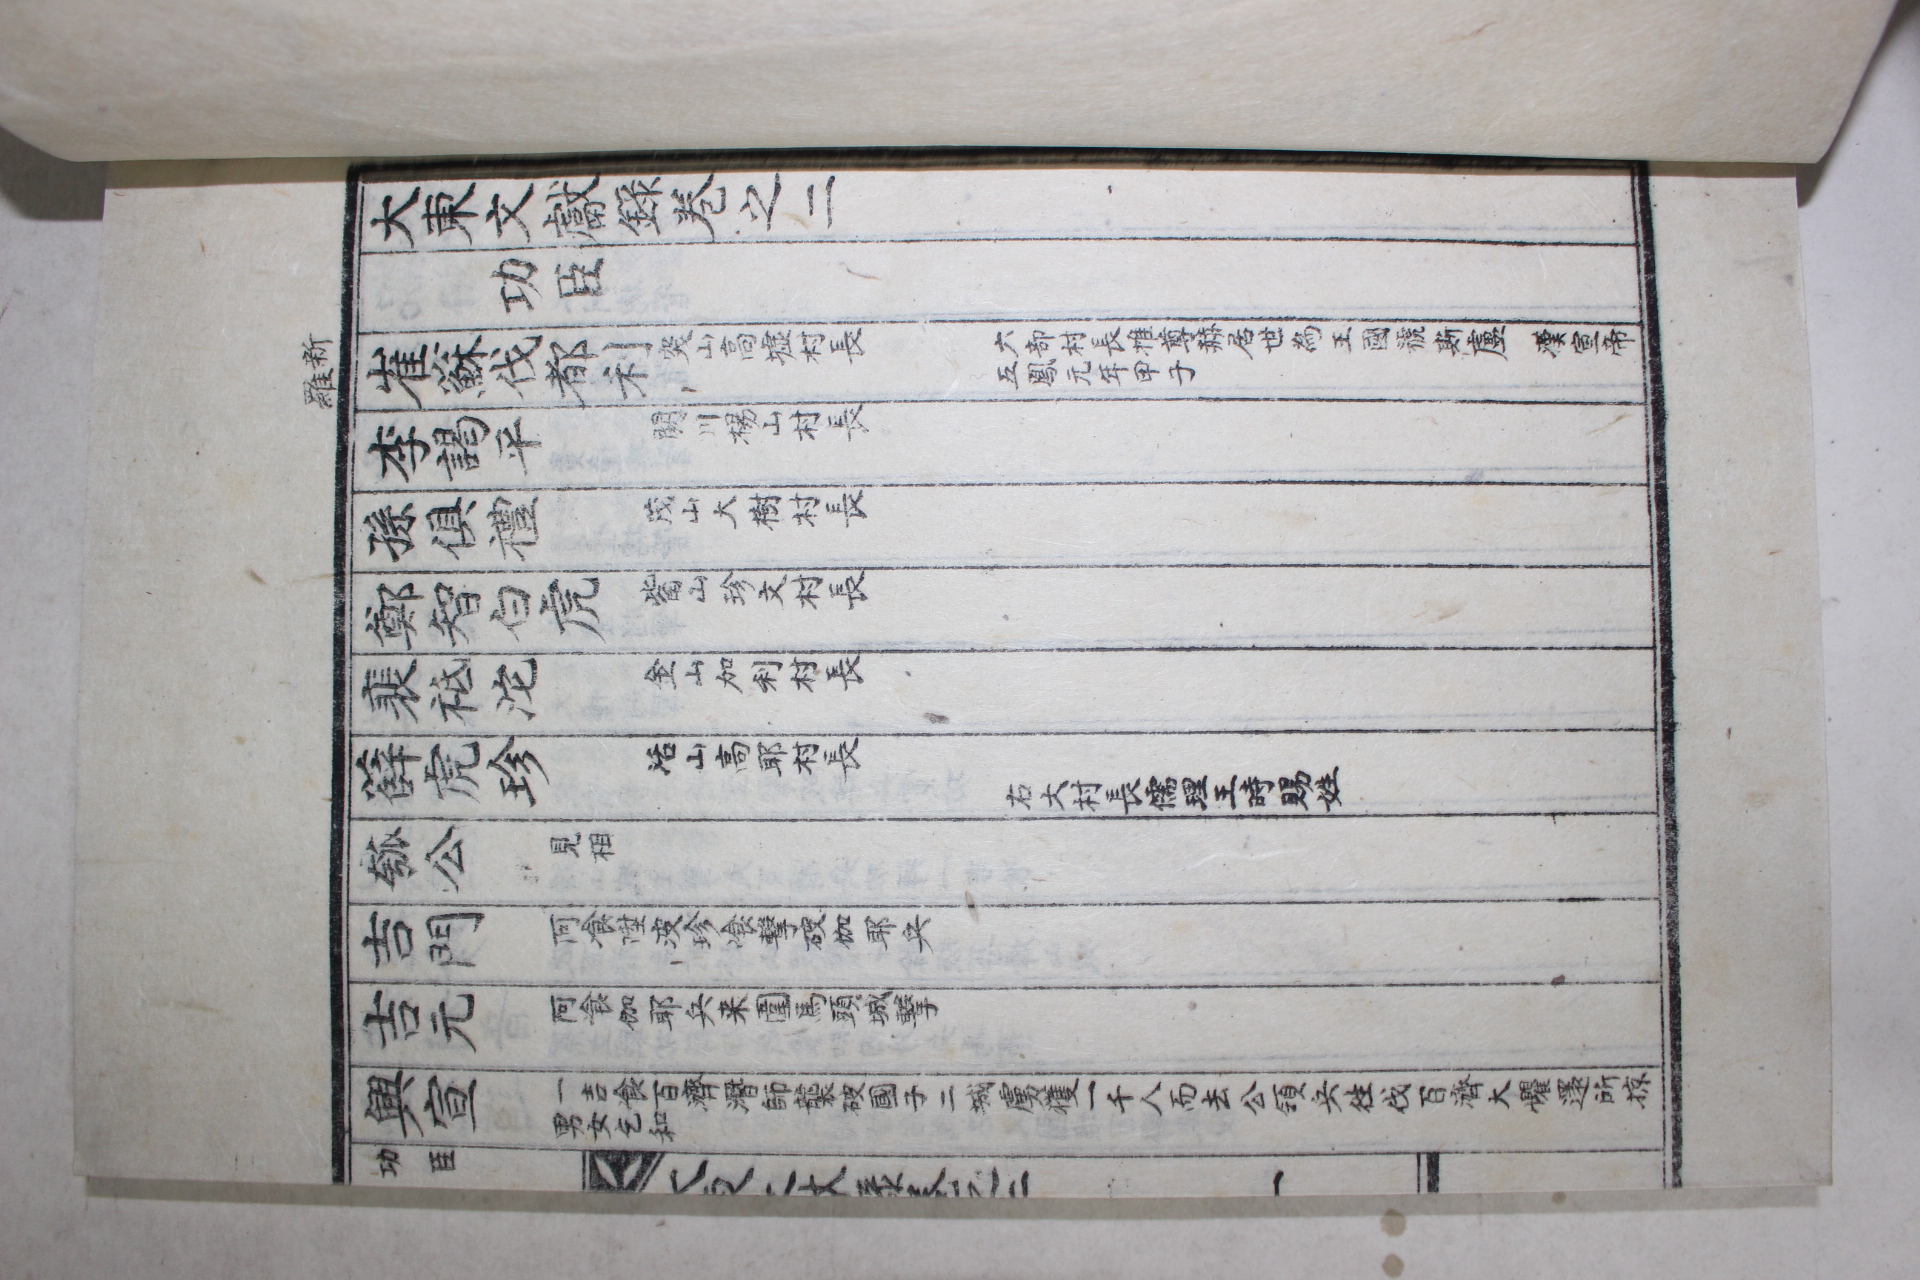 大東文獻錄卷之二
功臣
新羅
崔蘇伐都利 突山高墟村長 六部村長推尊赫居世為王國號斯盧 漢宣帝
五鳳元年甲子
李謁平 閼川楊山村長
孫俱禮 茂山大樹村長
鄭智白虎 觜山珍支村長
裴祗沱 金山加利村長
薛虎珍 活山高耶村長
右六村長儒理王時賜姓
瓠公 見相
吉門 阿飡陞波珍飡擊破伽耶兵
吉元 阿飡伽耶兵來圍馬頭城擊
興宣 一吉飡百濟潛師襲破國子二城虜獲一千人而去公領兵往伐百濟大懼還所掠
男女乞和
功臣
一